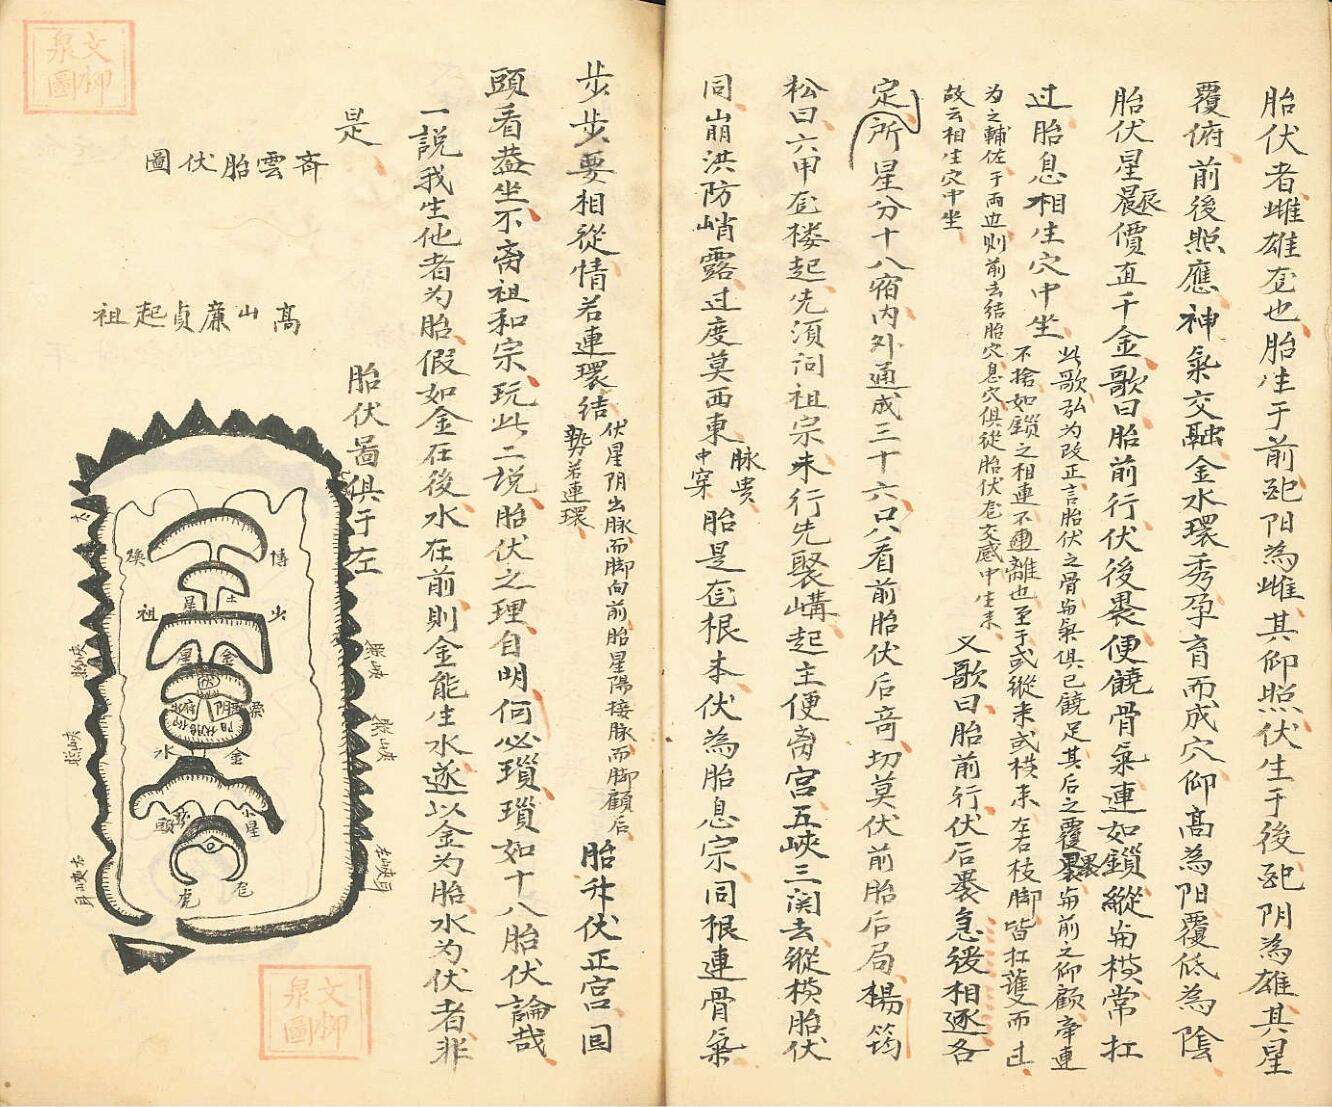 胎伏者雌雄𡉄也胎生于前配阳為雌其仰照伏生于後配阴為雄其星
覆俯前後照應神氣交融金水環秀孕育而成穴仰高為阳覆低為陰
胎伏星晨辰價直千金歌曰胎前行伏後褁便饒骨氣連如鎖縱與橫常扛
过胎息相生穴中坐
此歌弘为改正言胎伏之骨與氣俱已饒足其后之覆與前之仰顧牵連
不捨如鎖之相連不離也至于或縱来或橫来左右枝脚皆扛護而
为之輔佐于两边则前去结胎穴息穴俱從胎伏交感中生来
故云相生穴中坐
又歌曰胎前行伏后褁急後相逐各
定所星分十八宿内外通成三十六只看前胎伏后奇切莫伏前胎后局楊筠
松曰六甲楼起先須问祖宗未行先聚講起主便离宫五峽三関去縱横胎伏
同崩洪防峭露过度莫西東
脉贵
中穿
胎是根本伏為胎息宗同根連骨氣
步步要相從情若連環結
伏星阴出脉而脚向前胎星陽接脉而脚顧后
勢若連環
胎升伏正宫回
頭看葢坐不离祖和宗玩此二説胎伏之理自明何必瑣瑣如十八胎伏論哉
一説我生他者为胎假如金在後水在前則金能生水遂以金为胎水为伏者非
是
胎伏啚俱于左
齊雲胎伏圖
高山廉貞起祖
博
换
少
祖
土
星
金
星
水
金
小
星
虎
文柳
泉圖
文柳
泉圖